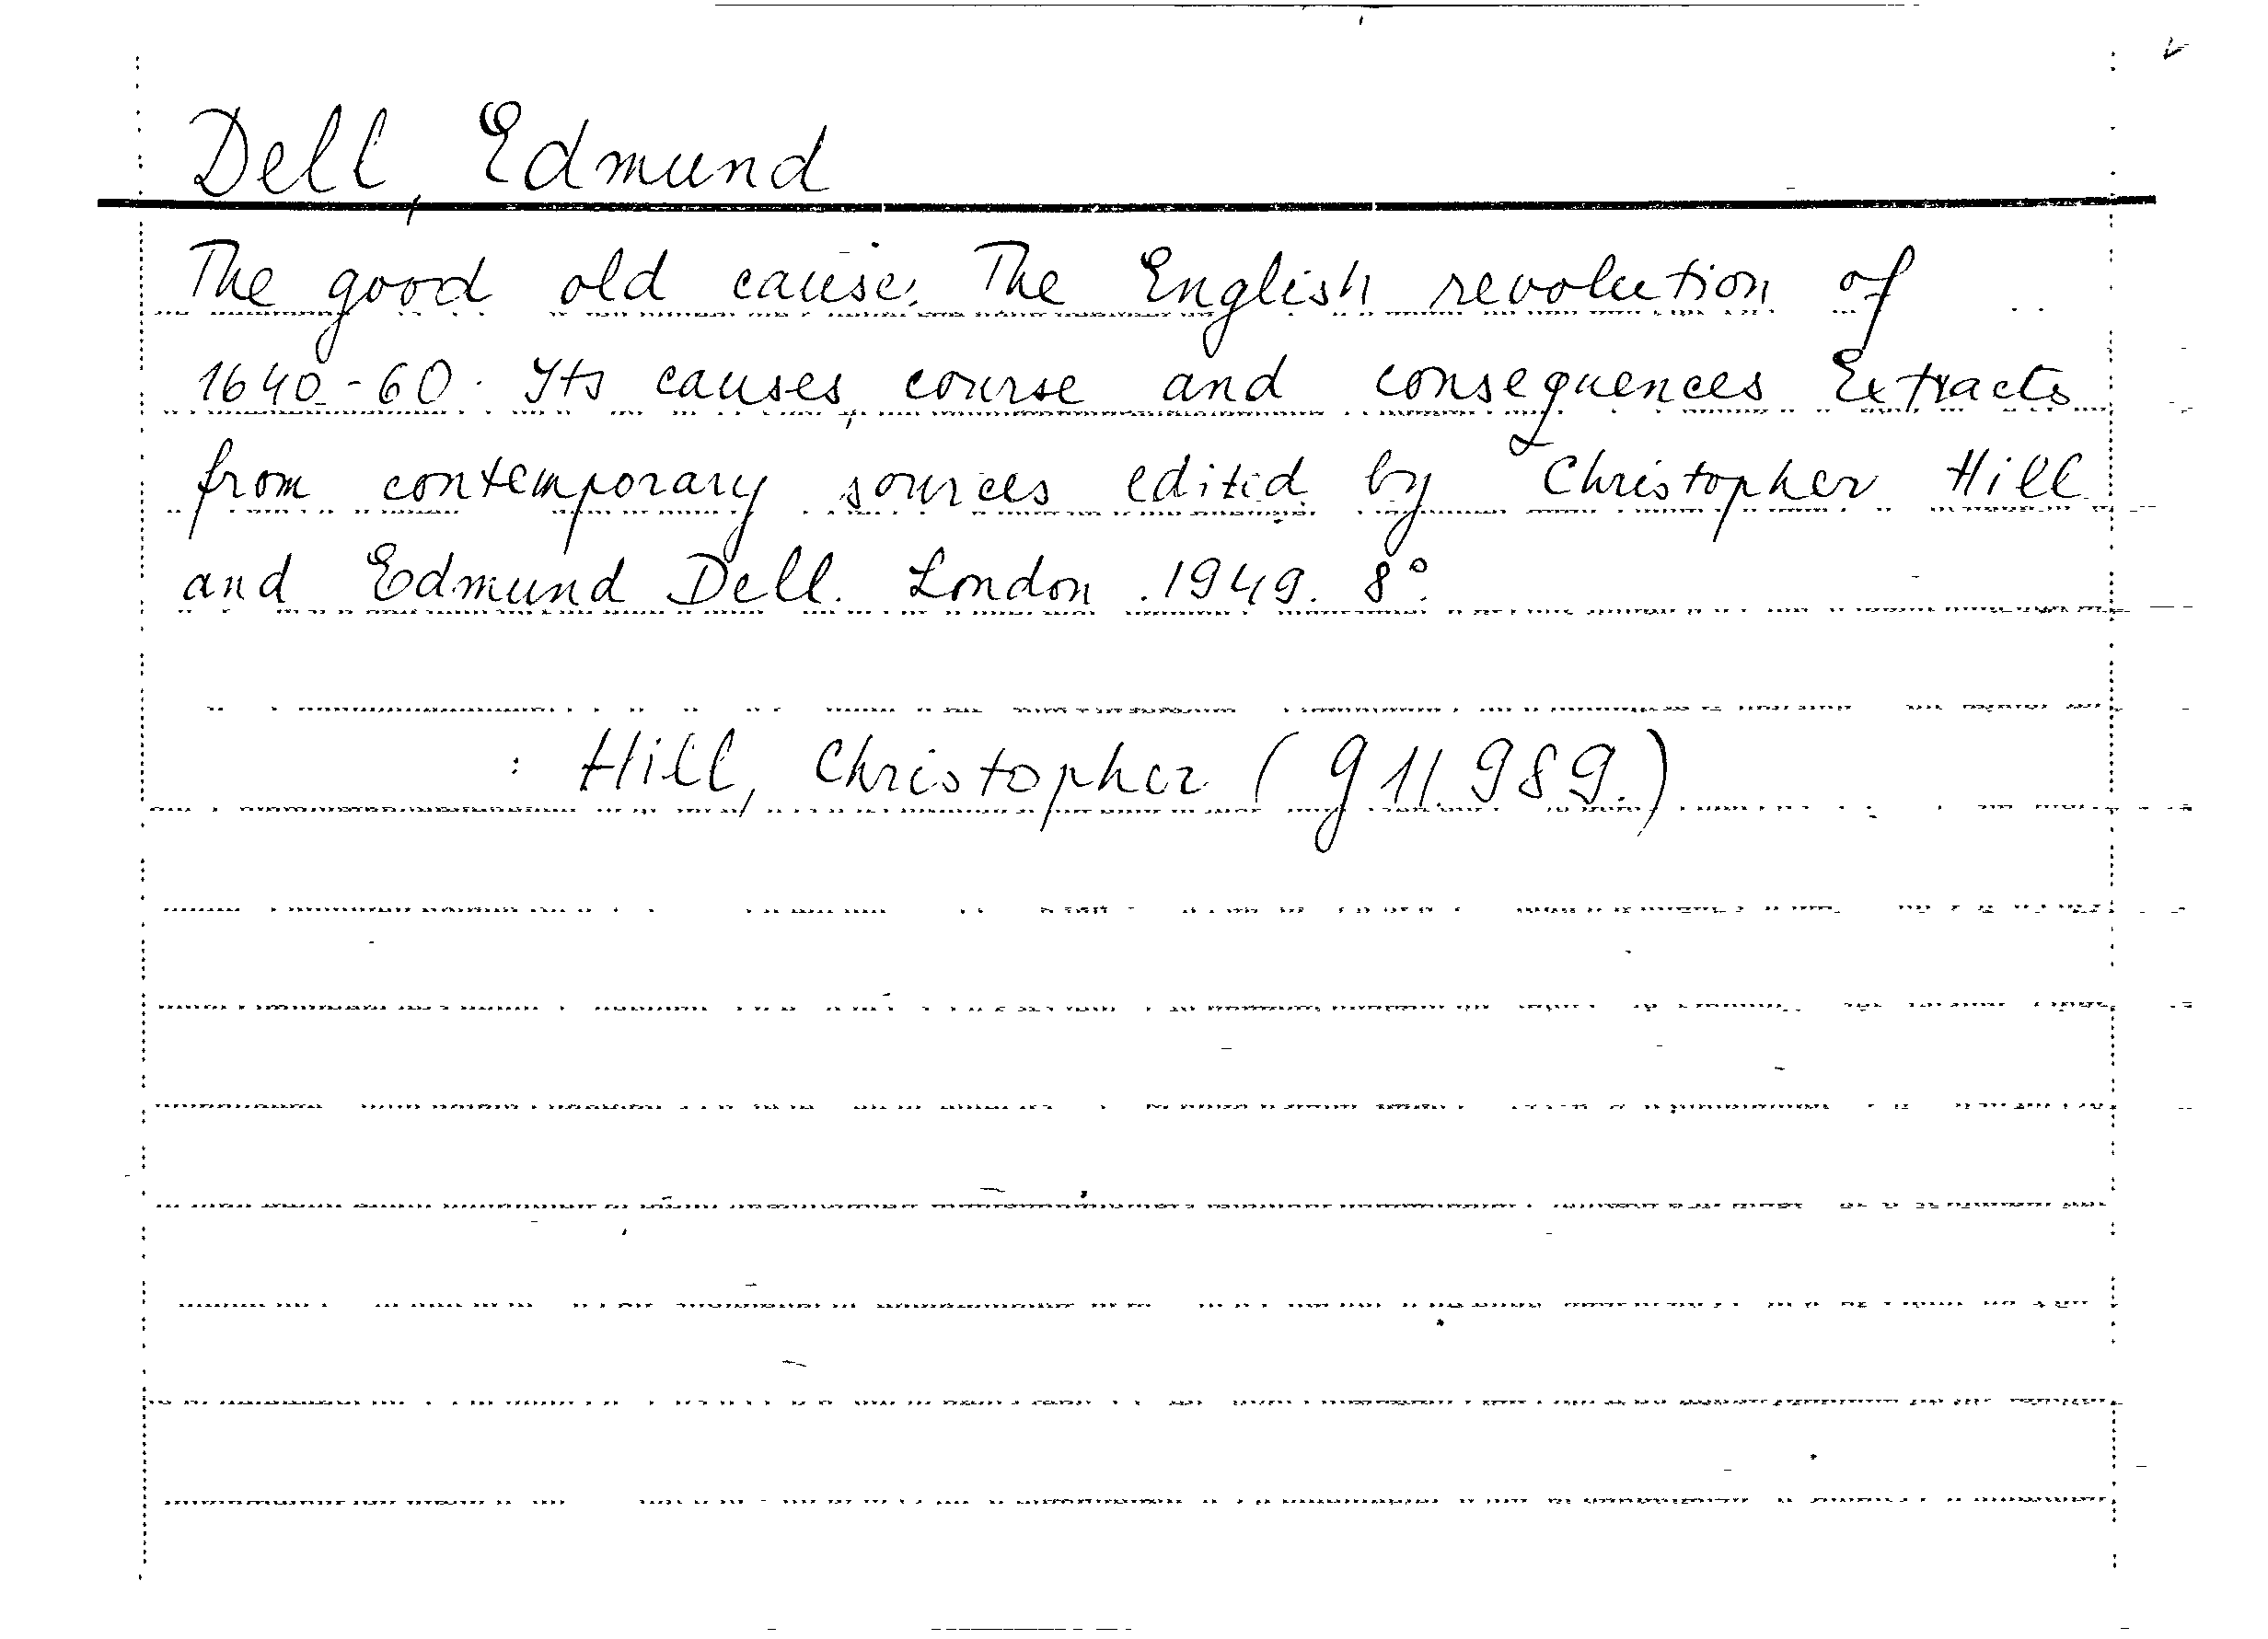 Dell, Edmund
The good old cause. The English revolution of
1640-60. Its causes, course and consequences Extracts
from contemporary sources edited by Christopher Hill
and Edmund Dell. London 1949. 8°.
: Hill, Christopher (911.989.)